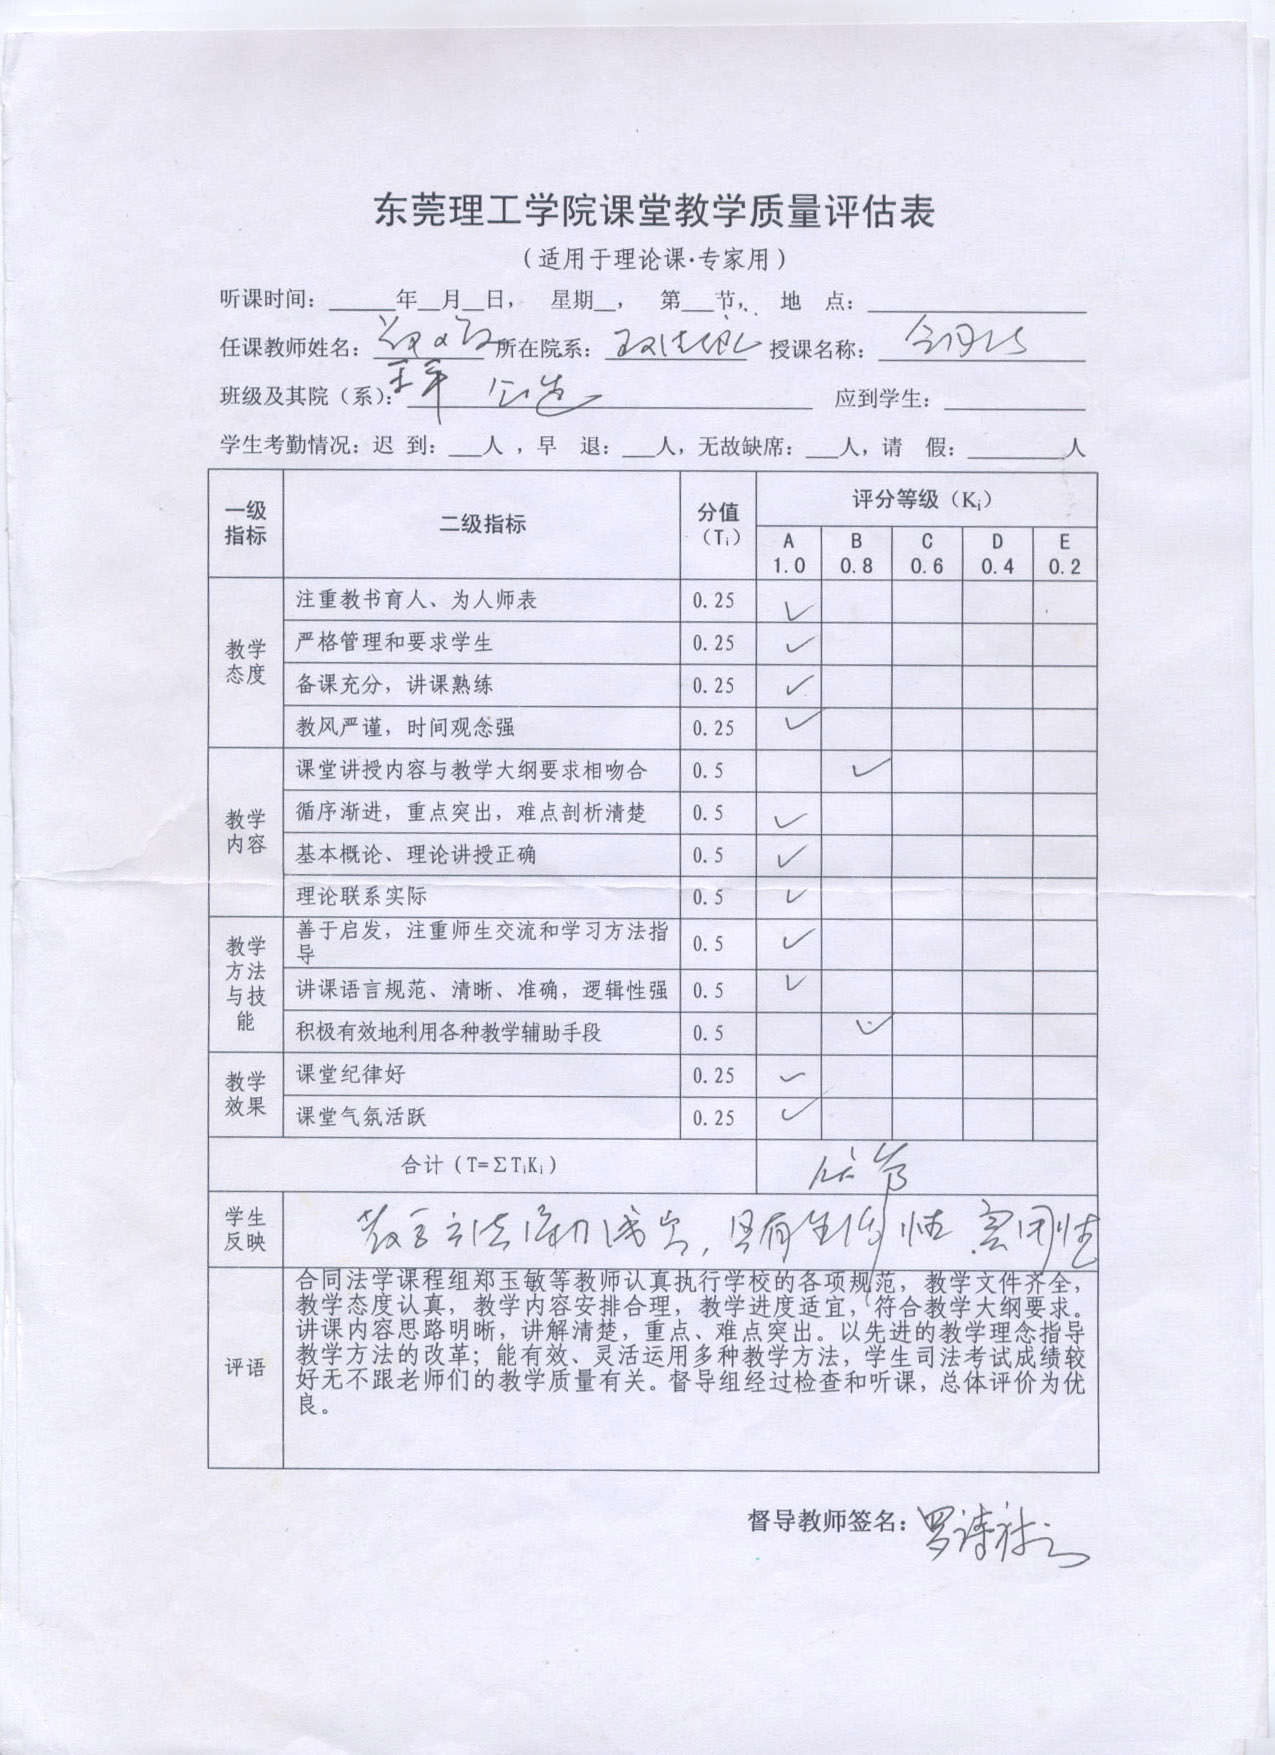 东莞理工学院课堂教学质量评估表
（适用于理论课·专家用）
听课时间：____年__月__日， 星期__， 第__节， 地 点：
任课教师姓名： 所在院系：政法系 授课名称：合同法
班级及其院（系）： 应到学生：
学生考勤情况：迟 到：__人 ，早 退：__人，无故缺席：__人，请 假：____人
一级指标 二级指标 分值（Ti） 评分等级（Ki）
A 1.0 B 0.8 C 0.6 D 0.4 E 0.2
教学态度
注重教书育人、为人师表 0.25 ✓
严格管理和要求学生 0.25 ✓
备课充分，讲课熟练 0.25 ✓
教风严谨，时间观念强 0.25 ✓
教学内容
课堂讲授内容与教学大纲要求相吻合 0.5 ✓
循序渐进，重点突出，难点剖析清楚 0.5 ✓
基本概论、理论讲授正确 0.5 ✓
理论联系实际 0.5 ✓
教学方法与技能
善于启发，注重师生交流和学习方法指导 0.5 ✓
讲课语言规范、清晰、准确，逻辑性强 0.5 ✓
积极有效地利用各种教学辅助手段 0.5 ✓
教学效果
课堂纪律好 0.25 ✓
课堂气氛活跃 0.25 ✓
合计（T=ΣTiKi）
学生反映
具有生动性
评语
合同法学课程组郑玉敏等教师认真执行学校的各项规范，教学文件齐全，
教学态度认真，教学内容安排合理，教学进度适宜，符合教学大纲要求。
讲课内容思路明晰，讲解清楚，重点、难点突出。以先进的教学理念指导
教学方法的改革；能有效、灵活运用多种教学方法，学生司法考试成绩较
好无不跟老师们的教学质量有关。督导组经过检查和听课，总体评价为优
良。
督导教师签名：